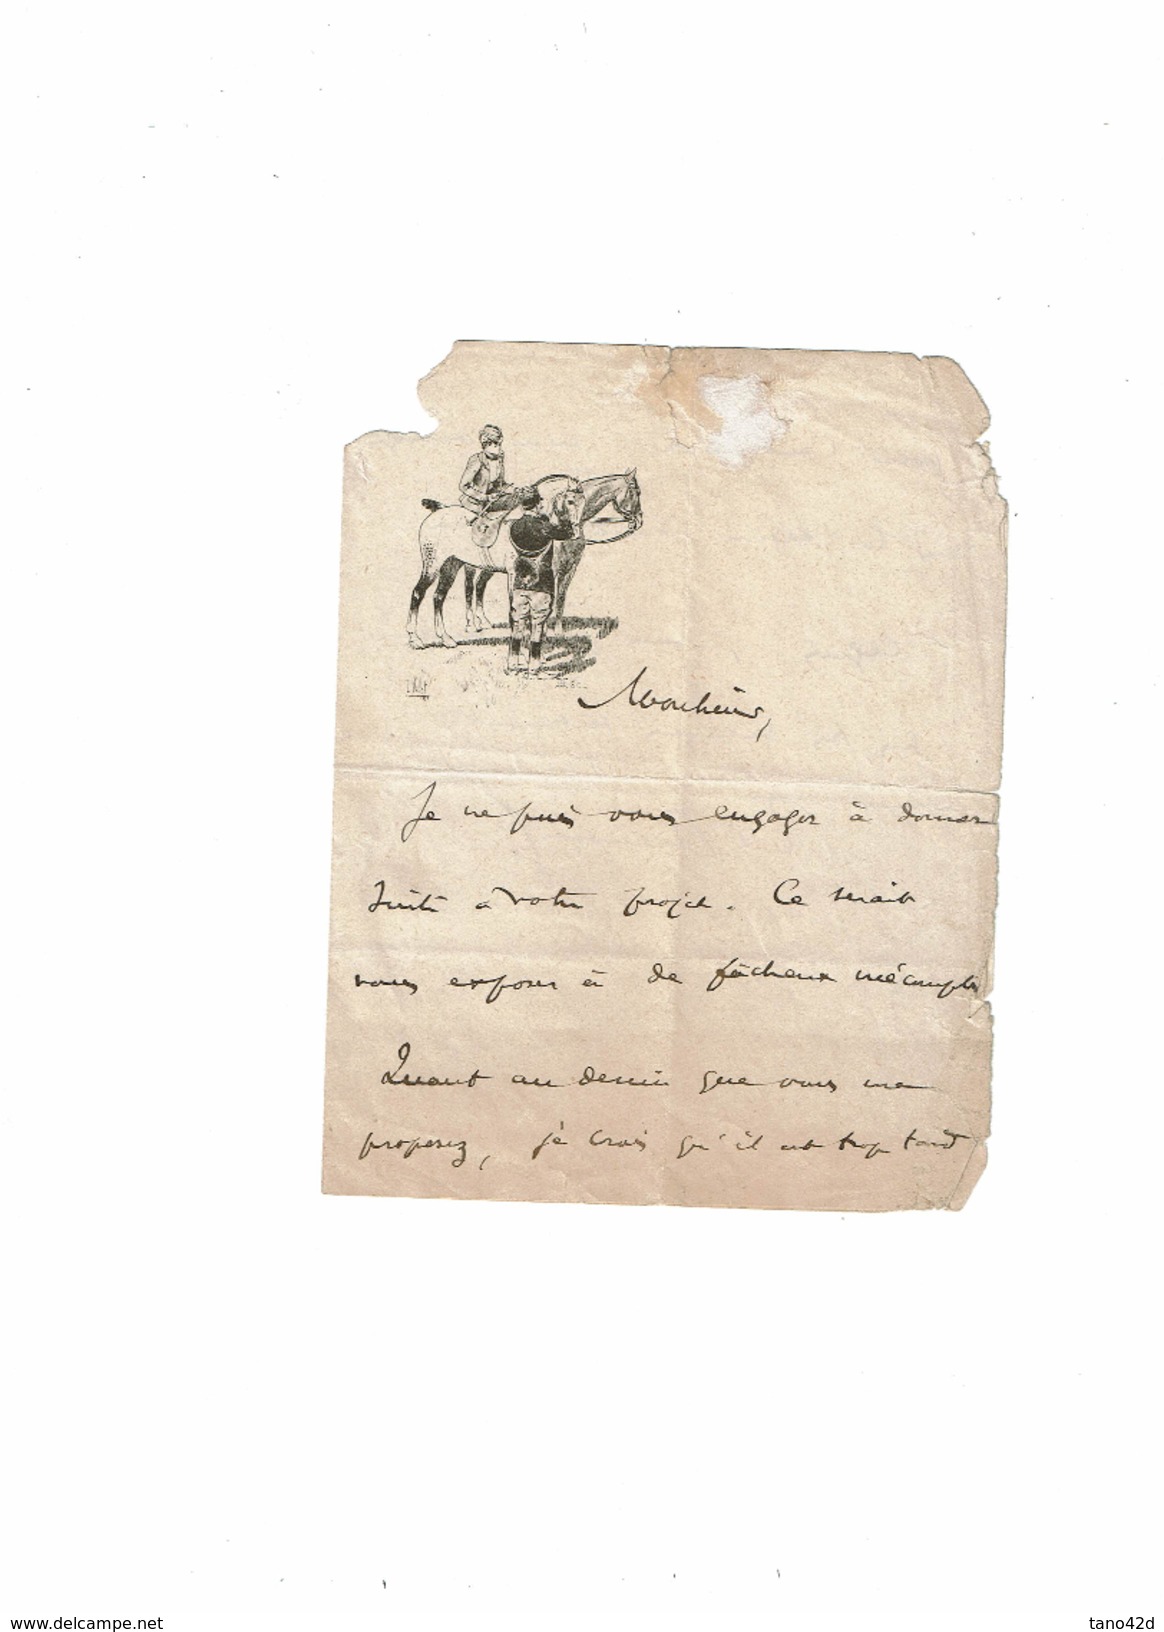 Monsieur,
Je ne puis vous engager à donner
suite à votre projet. Ce serait
vous exposer à de fâcheux mécomptes
Quant au dessin que vous me
proposez, je crois qu'il est trop tard
www.delcampe.net
tano42d